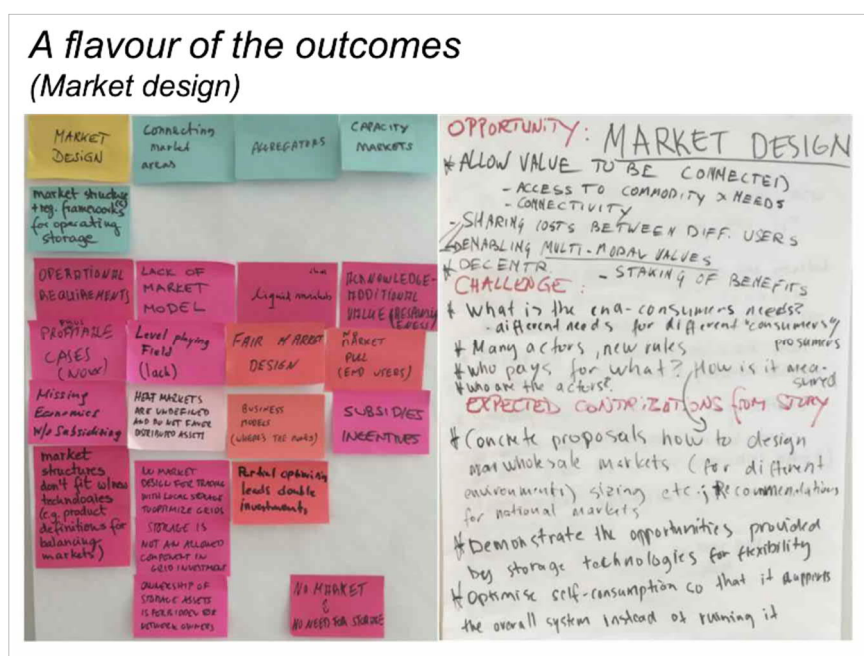 A flavour of the outcomes
(Market design)
MARKET
DESIGN
Connecting
market
areas
AGGREGATORS
CAPACITY
MARKETS
market structure
+ reg. frameworks
for operating
storage
OPERATIONAL
REQUIREMENTS
LACK OF
MARKET
MODEL
Liquid markets
ACKNOWLEDGE
ADDITIONAL
VALUE
PROFITABLE
CASES
(NOW)
Level playing
Field
(lack)
FAIR MARKET
DESIGN
MARKET
PULL
(END USERS)
Missing
Economics
w/o Subsidising
HEAT MARKETS
ARE UNDEFINED
AND DO NOT FAVOR
DISTRIBUTED ASSETS
BUSINESS
MODELS
SUBSIDIES
INCENTIVES
market
structures
don't fit w/new
technologies
(e.g. product
definitions for
balancing
markets)
NO MARKET
DESIGN FOR TRADING
WITH LOCAL STORAGE
TO OPTIMIZE GRIDS
Partial optimizing
leads double
investments
STORAGE IS
NOT AN ALLOWED
COMPONENT IN
GRID INVESTMENT
OWNERSHIP OF
STORAGE ASSETS
IS FORBIDDEN FOR
NETWORK OWNERS
NO MARKET
NO NEED FOR STORAGE
OPPORTUNITY: MARKET DESIGN
* ALLOW VALUE TO BE CONNECTED
- ACCESS TO COMMODITY & NEEDS
- CONNECTIVITY
- SHARING COSTS BETWEEN DIFF. USERS
ENABLING MULTI-MODAL VALUES
* DECENTR. - STAKING OF BENEFITS
CHALLENGE:
* What is the end-consumers needs?
- different needs for different "consumers"/
prosumers
* Many actors, new rules
* who pays for what? How is it measured
* who are the actors?
EXPECTED CONTRIBUTIONS from STORY
* Concrete proposals how to design
wholesale markets (for different
environments) sizing etc.; Recommendations
for national markets
* Demonstrate the opportunities provided
by storage technologies for flexibility
* Optimise self-consumption so that it supports
the overall system instead of running it